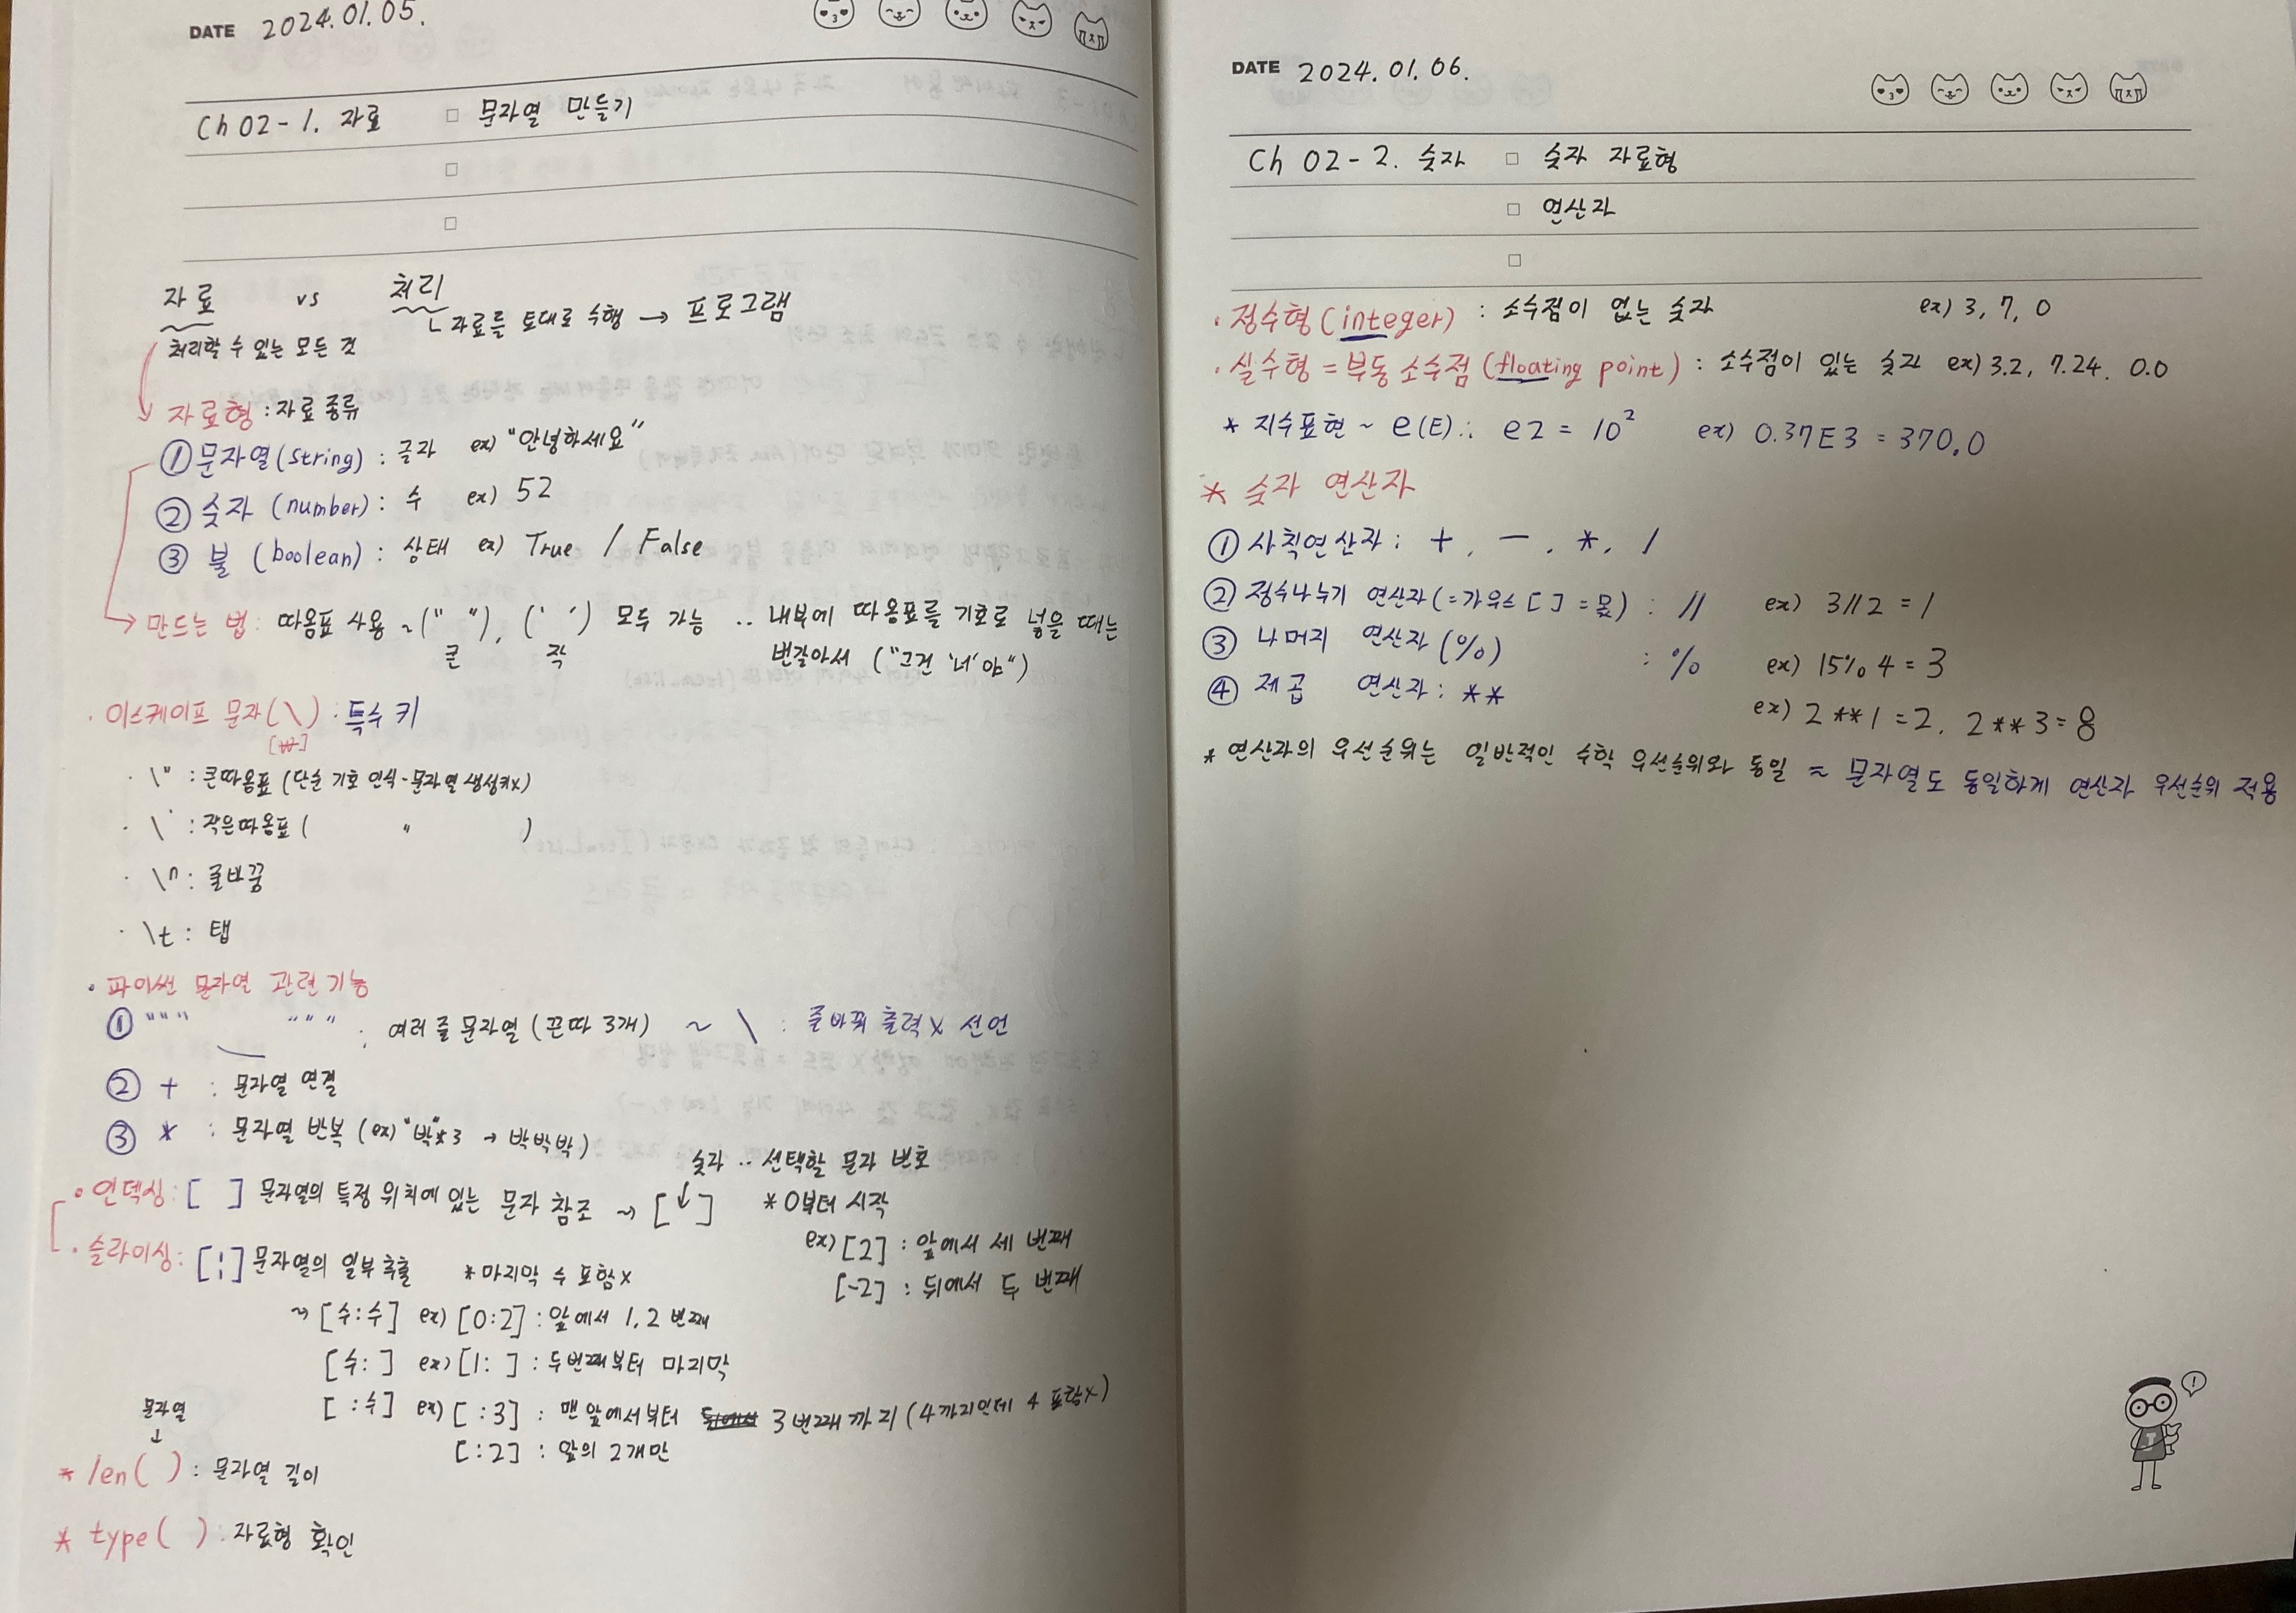 DATE 2024.01.05.
Ch 02-1. 자료 □ 문자열 만들기
□
□
자료 vs 처리
ㄴ자료를 토대로 수행 → 프로그램
처리할 수 있는 모든 것
자료형 : 자료 종류
① 문자열(string) : 글자 ex) "안녕하세요"
② 숫자 (number) : 수 ex) 52
③ 불 (boolean) : 상태 ex) True / False
→ 만드는 법: 따옴표 사용 ~ (" "), (' ') 모두 가능 .. 내부에 따옴표를 기호로 넣을 때는
큰 작 번갈아서 ("그건 '너'야")
· 이스케이프 문자(\) : 특수 키
[₩]
· \" : 큰따옴표 (단순 기호 인식-문자열 생성키x)
· \' : 작은따옴표 ( " )
· \n : 줄바꿈
· \t : 탭
· 파이썬 문자열 관련 기능
① """ """ : 여러 줄 문자열 (큰따 3개) ~ \ : 줄바꿔 출력 X 선언
② + : 문자열 연결
③ * : 문자열 반복 (ex) "박"*3 → 박박박)
숫자 .. 선택할 문자 번호
· 인덱싱 : [ ] 문자열의 특정 위치에 있는 문자 참조 ~ [↓] * 0부터 시작
ex) [2] : 앞에서 세 번째
[-2] : 뒤에서 두 번째
· 슬라이싱 : [:] 문자열의 일부 추출 * 마지막 수 포함x
~ [수:수] ex) [0:2] : 앞에서 1, 2 번째
[수: ] ex) [1: ] : 두번째부터 마지막
[ :수] ex) [ :3] : 맨 앞에서부터 뒤에서 3번째까지 (4까지인데 4 포함x)
[:2] : 앞의 2개만
문자열
↓
* len( ) : 문자열 길이
* type( ) : 자료형 확인
DATE 2024.01.06.
Ch 02-2. 숫자 □ 숫자 자료형
□ 연산자
□
· 정수형(integer) : 소수점이 없는 숫자 ex) 3, 7, 0
· 실수형 = 부동 소수점 (floating point) : 소수점이 있는 숫자 ex) 3.2, 7.24. 0.0
* 지수표현 ~ e(E) : e2 = 10² ex) 0.37E3 = 370.0
* 숫자 연산자
① 사칙연산자 : +, -, *, /
② 정수나누기 연산자(=가우스 [ ] = 몫) : // ex) 3//2 = 1
③ 나머지 연산자 (%) : % ex) 15% 4 = 3
④ 제곱 연산자 : ** ex) 2**1 = 2, 2**3 = 8
* 연산자의 우선순위는 일반적인 수학 우선순위와 동일 ≈ 문자열도 동일하게 연산자 우선순위 적용
!
T